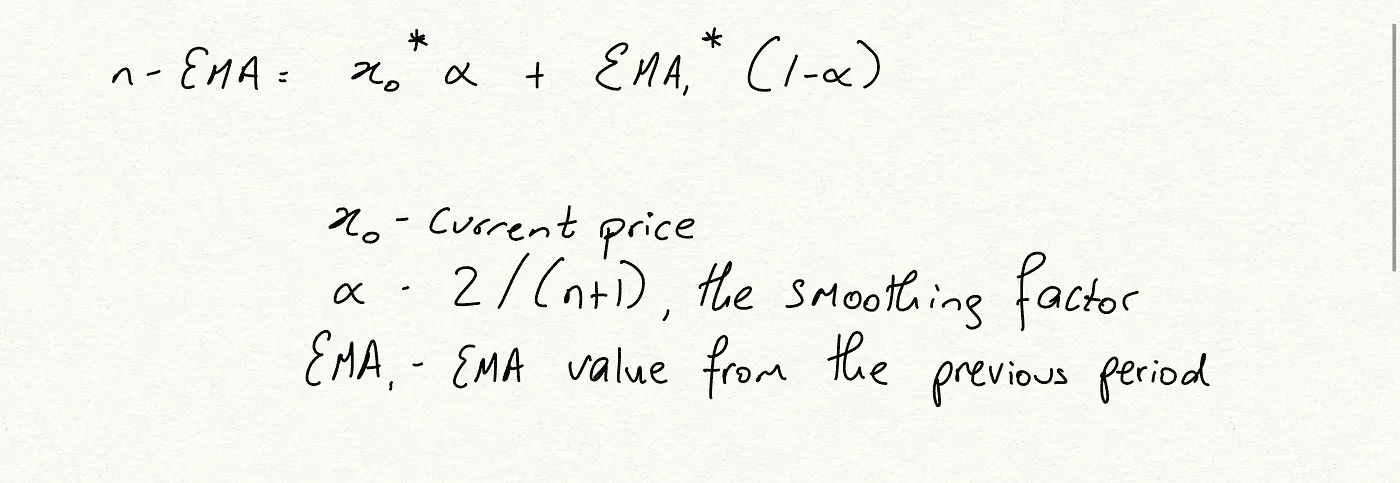 n - EMA = x₀ * α + EMA₁ * (1-α)
x₀ - Current price
α - 2/(n+1), the smoothing factor
EMA₁ - EMA value from the previous period